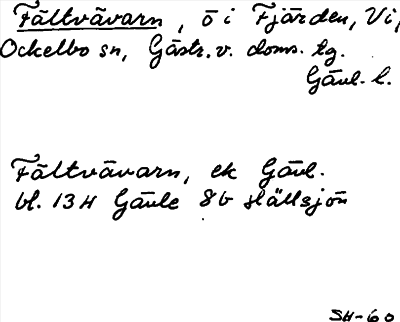 Fältvävarn, ö i Fjärden, Vi,
Ockelbo sn, Gästr. v. doms. tg.
Gävl. l.
Fältvävarn, ek Gävl.
bl. 13H Gävle 8b Hällsjön
SH-60